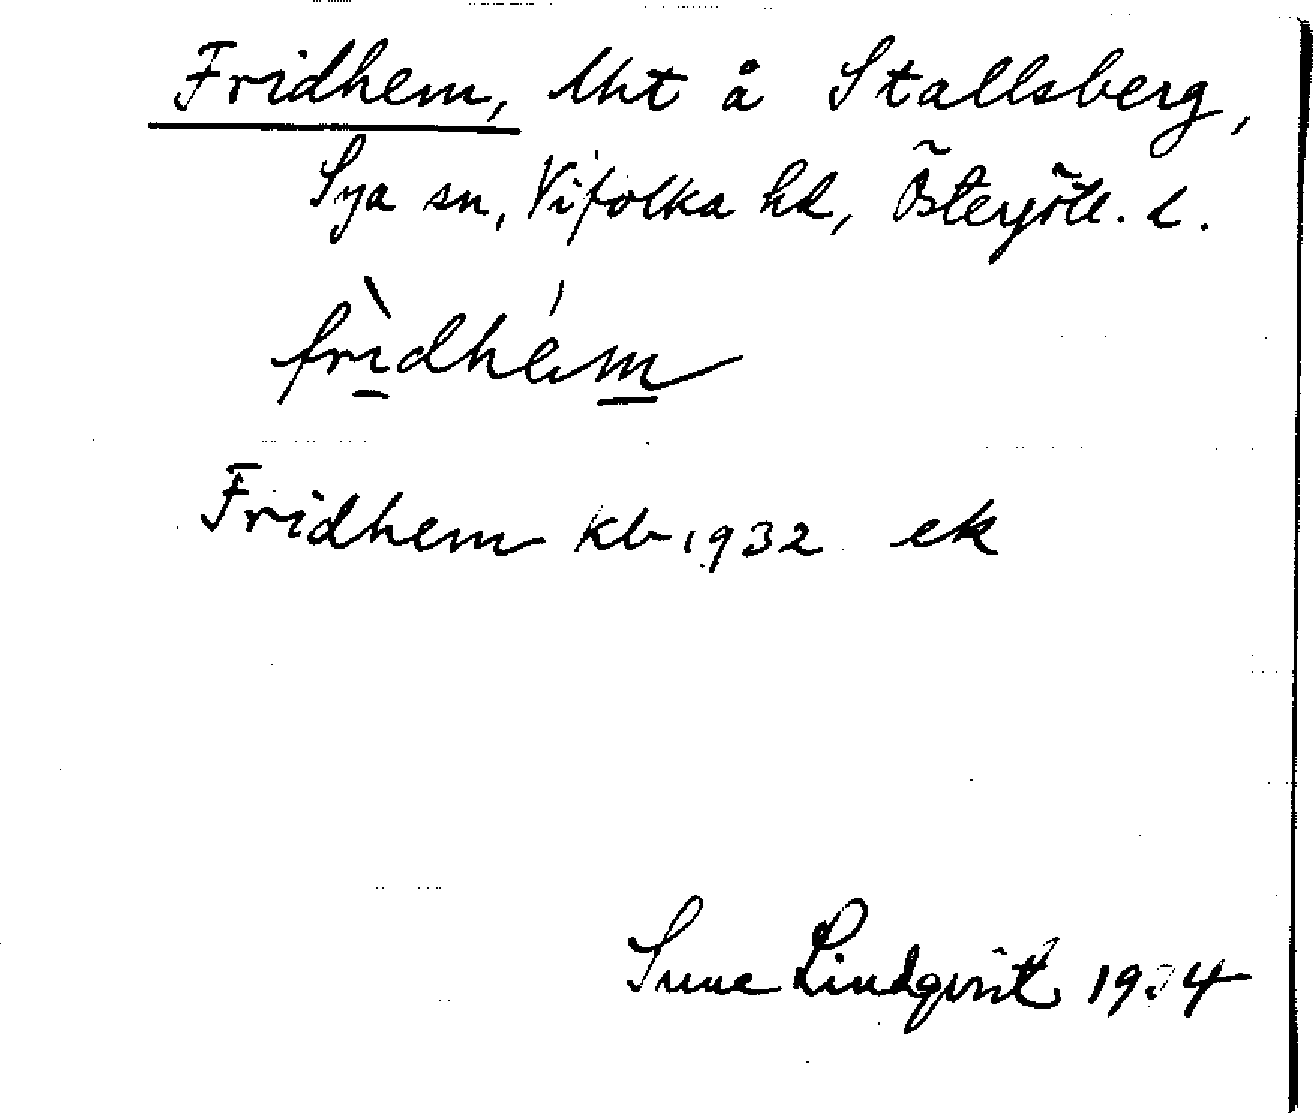 Fridhem, lht å Stallsberg,
Sya sn, Vifolka hd, Östergötl. l.
frìdhém
Fridhem kb 1932 ek
Sune Lindqvist 1934